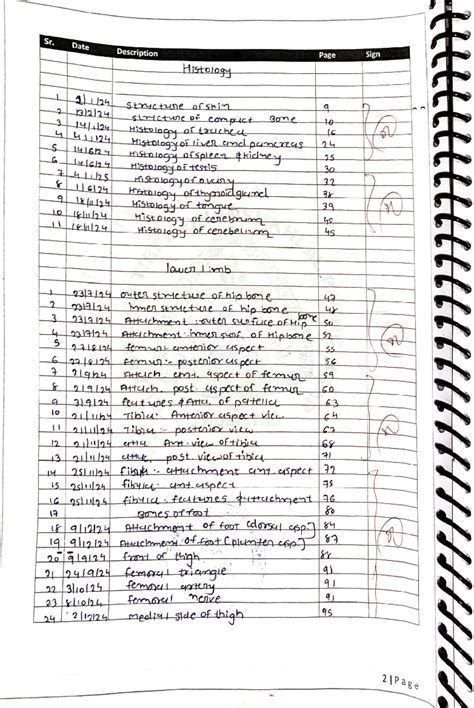 Sr. Date Description Page Sign
Histology
1 2/1/24 Structure of skin 9
2 13/2/24 structure of compact Bone 10
3 14/1/24 Histology of trachea 16
4 4/1/24 Histology of liver and pancreas 24
5 14/6/24 Histology of spleen & kidney 25
6 14/6/24 Histology of testis 30
7 4/1/25 Histology of ovary 32
8 11/6/24 Histology of thyroid gland 38
9 18/11/24 Histology of tongue 39
10 18/11/24 Histology of cerebrum 45
11 18/11/24 Histology of cerebellum 45
lower limb
1 23/7/24 outer structure of hip bone 47
2 23/7/24 inner structure of hip bone 48
3 23/7/24 Attachment :outer surface of Hip bone 50
4 23/7/24 Attachment :inner surf. of Hipbone 52
5 27/8/24 femur: anterior aspect 55
6 27/8/24 Femur:- posterior aspect 56
7 2/9/24 Attach. ant. aspect of femur 59
8 2/9/24 Attach. post. aspect of femur 60
9 3/9/24 features & Atta. of patella 63
10 21/11/24 Tibia: Anterior aspect view 64
11 21/11/24 Tibia:- posterior view 67
12 21/11/24 atta. Ant. view of tibia 68
13 21/11/24 atta. post. view of tibia 71
14 25/11/24 fibula:- attachment ant. aspect 72
15 25/11/24 fibula: ant. aspect 75
16 25/11/24 fibula:- features & attachment 76
17 Bones of foot 80
18 9/12/24 Attachment of foot (dorsal asp.] 84
19 9/12/24 Attachment of foot (plantar asp.] 87
20 9/9/24 front of thigh 88
21 24/9/24 femoral triangle 91
22 3/10/24 femoral artery 91
23 8/10/24 femoral nerve 91
24 2/12/24 medial side of thigh 95
2 | Page